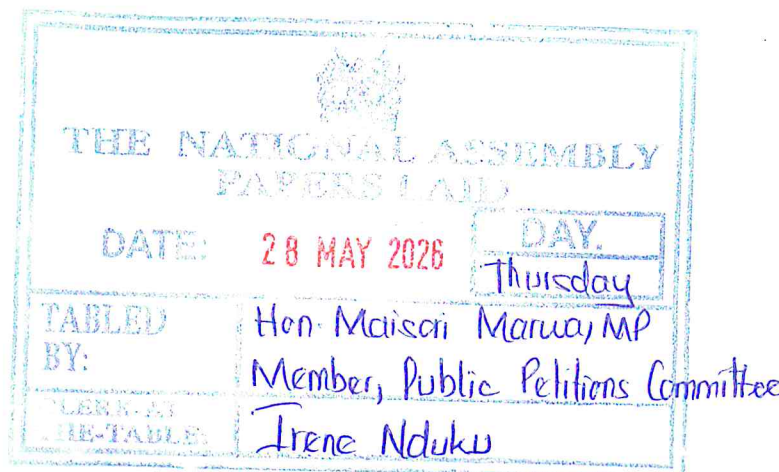 THE NATIONAL ASSEMBLY
PAPERS LAID
DATE: 28 MAY 2026
DAY.
Thursday
TABLED BY: Hon. Maisori Marwa, MP
Member, Public Petitions Committee
CLERK-AT THE-TABLE: Irene Nduku